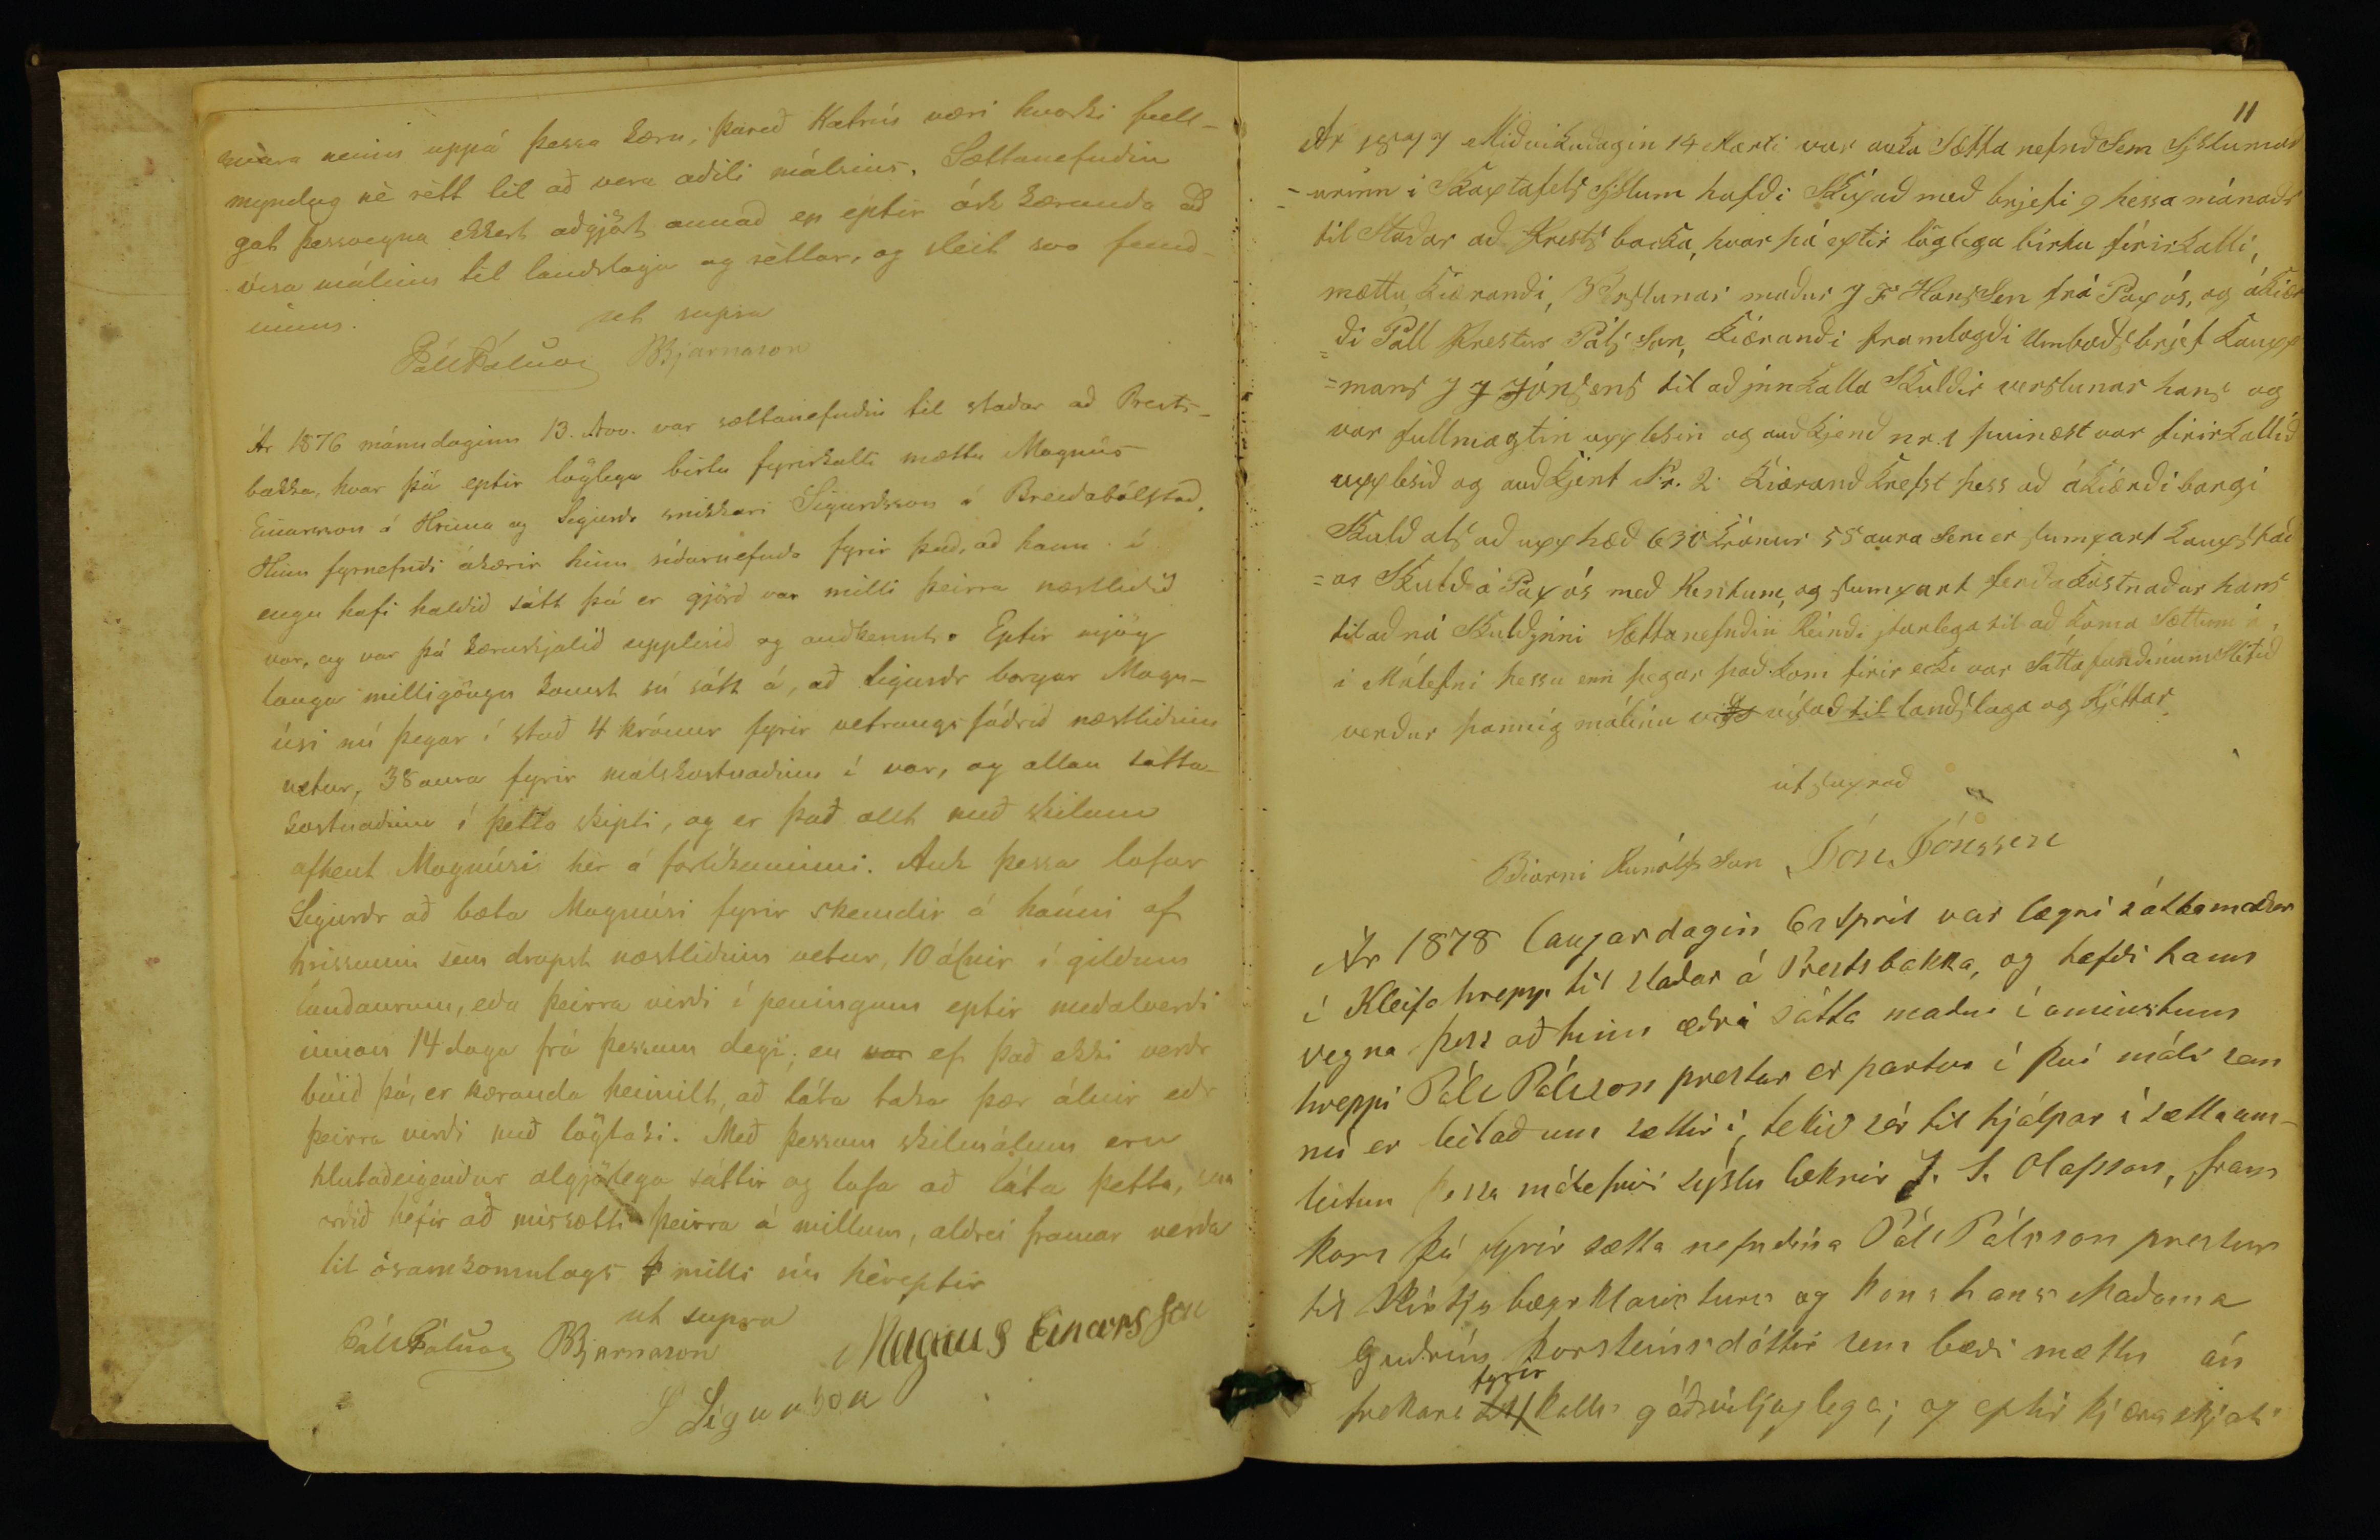 svara neinu uppá þessa kæru, þareð Katrín væri hvorki full-
myndug nè rètt til að vera aðili málsins. Sættanefndin
gat þessvegna ekkert aðgjört annað en eptir ósk kæranda að
vísa málinu til landslaga og rèttar, og sleit svo fund-
inum.
ut supra
Páll Pálsson BBjarnason
Ár 1876 mánudaginn 13. Nov. var sættanefndin til staðar að Prests-
bakka, hvar þá eptir löglega birtu fyrirkalli mættu Magnús
Einarsson á Hruna og Sigurðr snikkari Sigurðsson á Breiðabólstað.
Hinn fyrnefndi ákærir hinn síðarnefnda fyrir það, að hann í
engu hafi haldið sátt þá er gjörð var milli þeirra næstliðið
vor, og var þá kæruskjalið upplesið og auðkennt. Eptir mjög
langa milligöngu komst sú sátt á, að Sigurðr borgar Magn-
úsi nú þegar í stað 4 krónur fyrir vetrungsfóðrið næstliðinn
vetur, 38 aura fyrir málskostnaðinn í vor, og allan sátta-
kostnaðinn í þetta skipti, og er það allt með skilum
afhent Magnúsi hèr á forlíkuninni. Auk þessa lofar
Sigurðr að bæta Magnúsi fyrir skemdir á húðinni af
hrissunni sem drapst næstliðinn vetur, 10 álnir í gildum
landaurum, eða þeirra virði í peningum eptir meðalverði
innan 14 daga frá þessum degi; en var ef það ekki verðr
búið þá, er kæranda heimilt, að láta taka þær álnir eðr
þeirra virði með lögtaki. Með þessum skilmálum eru
hlutaðeigendur algjörlega sáttir og lofa að láta þetta, sem
orðið hefir að missætti þeirra á millum, aldrei framar verða
til ósamkomulags milli sín hèreptir
ut supra
Páll Pálsson BBjarnason Magnus Einarsson
S Sigurðson
11
Ár 1877 Miðvikudagin 14 Marti var auka Sætta nefnd Sem Syslumað
-urinn i Skaptafels Syslum hafði Skipað með brjefi 9 þessa mánaðr
til Staðar að Prests bacKa, hvar þá eptir löglega birtu firirkalli,
mættu Kiærandi, Verslunar maður J F Hanssen frá Papós, og áKiær
=ði Páll Prestur Pálsson, Kiærandi framlagði Umboðsbrjef Kaupp
=mans J J Jónsens til að innkalla Skuldir verslunar hans og
var fullmagtin upplesin og auðkjend nr. 1 þvinæst var firirkallið
upplesið og auðkjent Nr. 2. Kiærand Krefst þess að áKiærði borgi
Skuld als að upphæð 630 Krónur 55 aura Sem er sumpart Kaupstað
=ar Skuld á Papós með Rentum, og sumpart ferðakostnaður hans
til að ná Skuldinni Sættanefndin Reindi itarlega til að Koma Sættum á
i Málefni þessu enn þegar það Kom firir ecki var Sáttafundinum Slitið
verður þannig málinu vísað til landslaga og Rjéttar
útsuprað
Biarni Runólfsson Jón Jónssen
Ár 1878 laugardagin 6 Apríl var lægri sáttamaður
í Kleifahrepp til staðar á Prestsbakka, og hefði hann
vegna þess að hinn æðri sátta maður í áminstum
hreppi Páll Pálsson prestur er partur í því máli sem
nú er leitað um sættir í, tekið sér til hjálpar í sættaum-
leitun þessa málefnis sýslu læknir J. S. Olafsson, fram
kom þá fyrir sætta nefndina Páll Pálsson prestur
til Kirkjubæjarklausturs og kona hans Madama
Guðrún Þorsteinsdóttir sem bæði mættu án
frekara fyrirkalls góðviljuglega; og eptir kjæruskjali